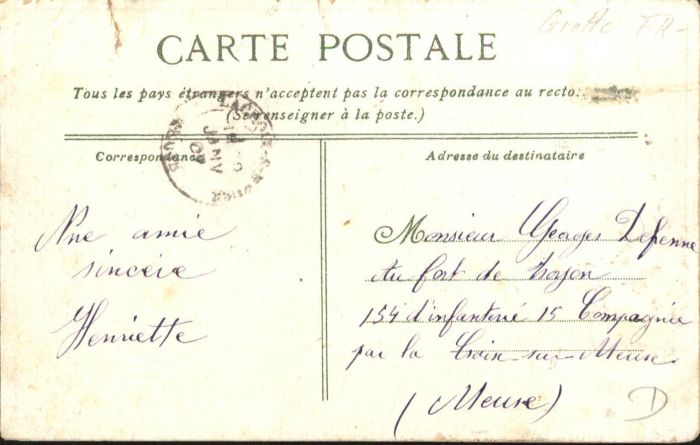 Grotte FR-
CARTE POSTALE
Tous les pays étrangers n'acceptent pas la correspondance au recto.
(Se renseigner à la poste.)
Correspondance
Adresse du destinataire
Une amie
sincère
Henriette
Monsieur Georges Defenne
Au fort de troyon
154 d'infanterié 15 Compagnie
par la Croix-sur-Meuse
(Meuse)
D